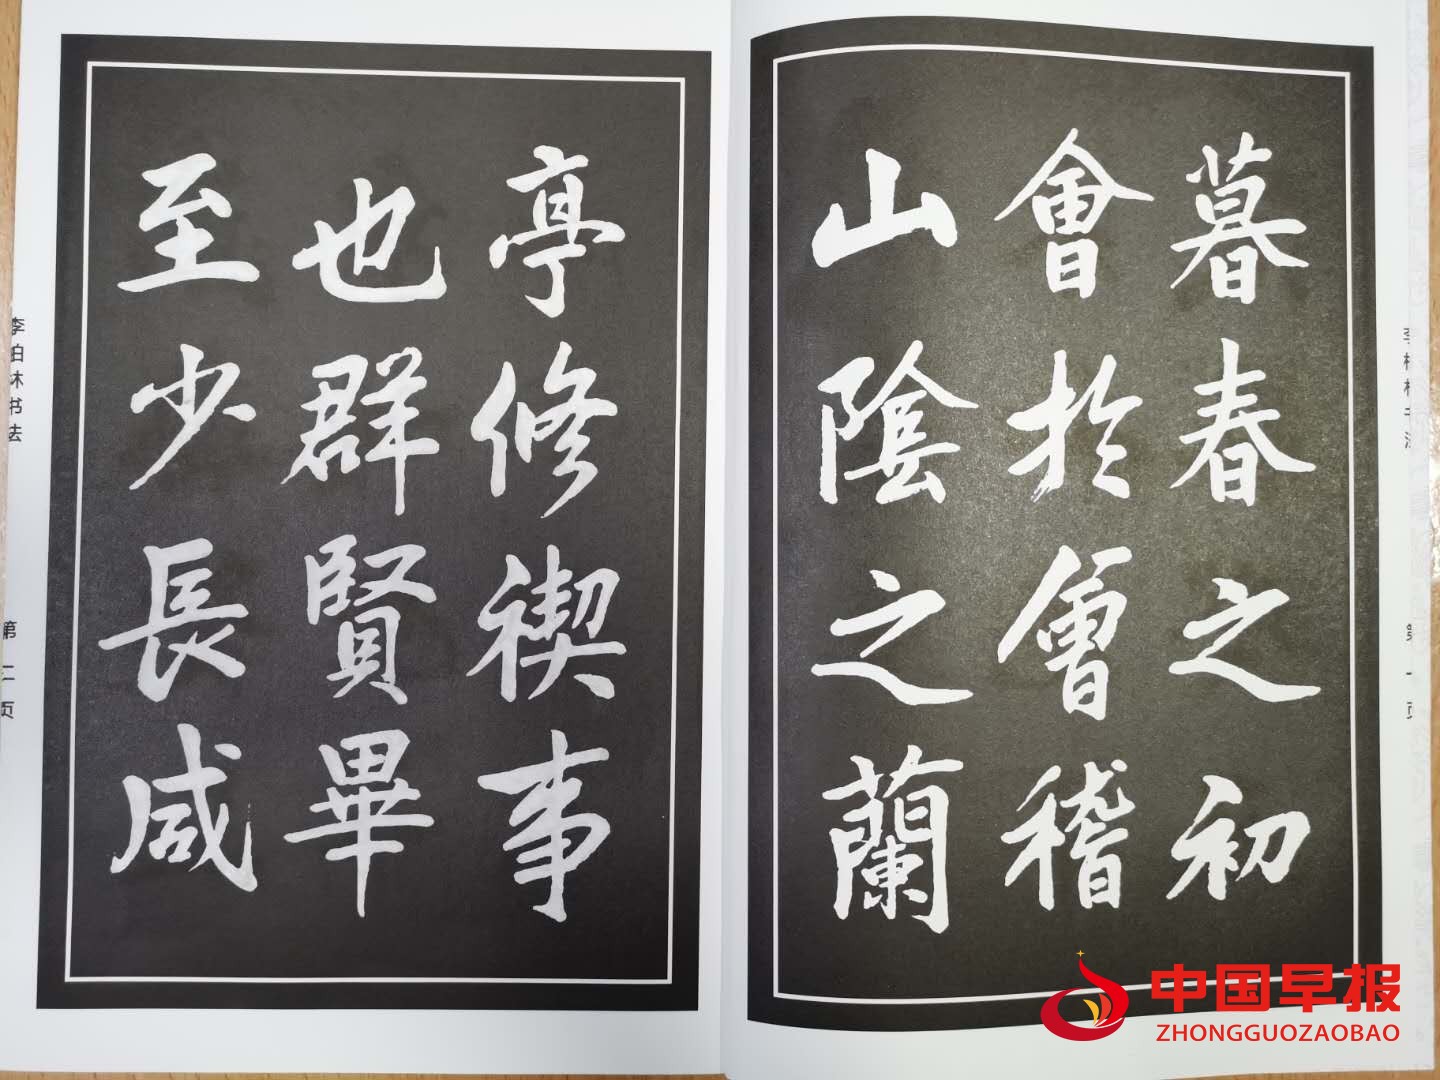 暮春之初
會於會稽
山陰之蘭
亭修禊事
也群賢畢
至少長咸
李柏林书法
第一页
李柏林书法
第二页
中国早报
ZHONGGUOZAOBAO